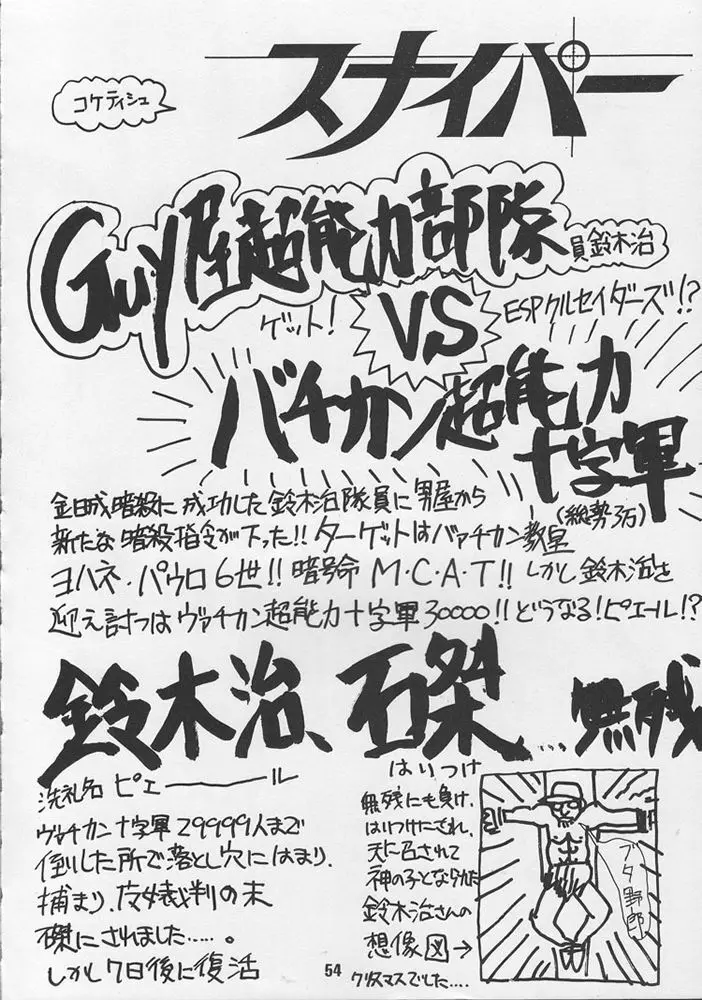 コケティシュ
スナイパー
Guy屋超能力部隊
員鈴木治
ゲット!
VS
ESPクルセイダーズ!?
バチカン超能力
十字軍
(総勢3万)
金日成暗殺に成功した鈴木治隊員に男屋から
新たな暗殺指令が下った!!ターゲットはバァチカン教皇
ヨハネ・パウロ6世!!暗号命M・C・A・T!!しかし鈴木治を
迎え討つはヴァチカン超能力十字軍30000!!どうなる!ピエール!?
鈴木治、石桀…無残
はりつけ
洗礼名 ピエ――――ル
ヴァチカン十字軍29999人まで
倒した所で落とし穴にはまり、
捕まり、宗教裁判の末
磔にされました……。
しかし7日後に復活
無残にも負け、
はりつけにされ、
天に召されて
神の子となられた
鈴木治さんの
想像図→
クリスマスでした….
ブタ野郎
54